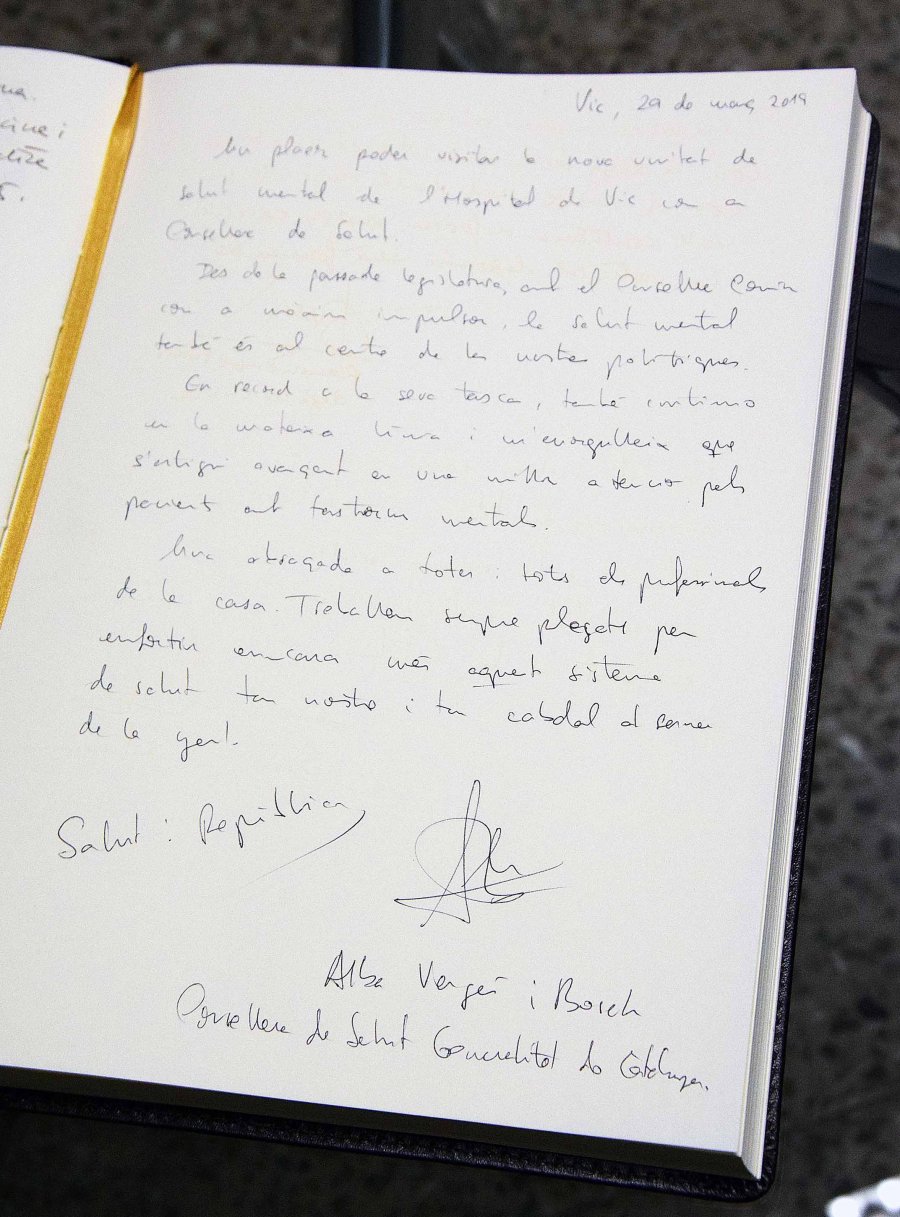 na.
cina i
5.
Vic, 29 de març 2019
Un plaer poder visitar la nova unitat de
salut mental de l'Hospital de Vic com a
Consellera de Salut.
Des de la passada legislatura, amb el Conseller Comín
com a màxim impulsor, la salut mental
també és al centre de les nostres polítiques.
En record a la seva tasca, també continuo
en la mateixa línia i m'enorgulleix que
s'estigui avançant en una millor atenció pels
pacients amb trastorns mentals.
Una abraçada a totes i tots els professionals
de la casa. Treballem sempre plegats per
enfortir encara més aquest sistema
de salut tan nostre i tan cabdal al servei
de la gent.
Salut i República
Alba Vergés i Bosch
Consellera de Salut Generalitat de Catalunya.